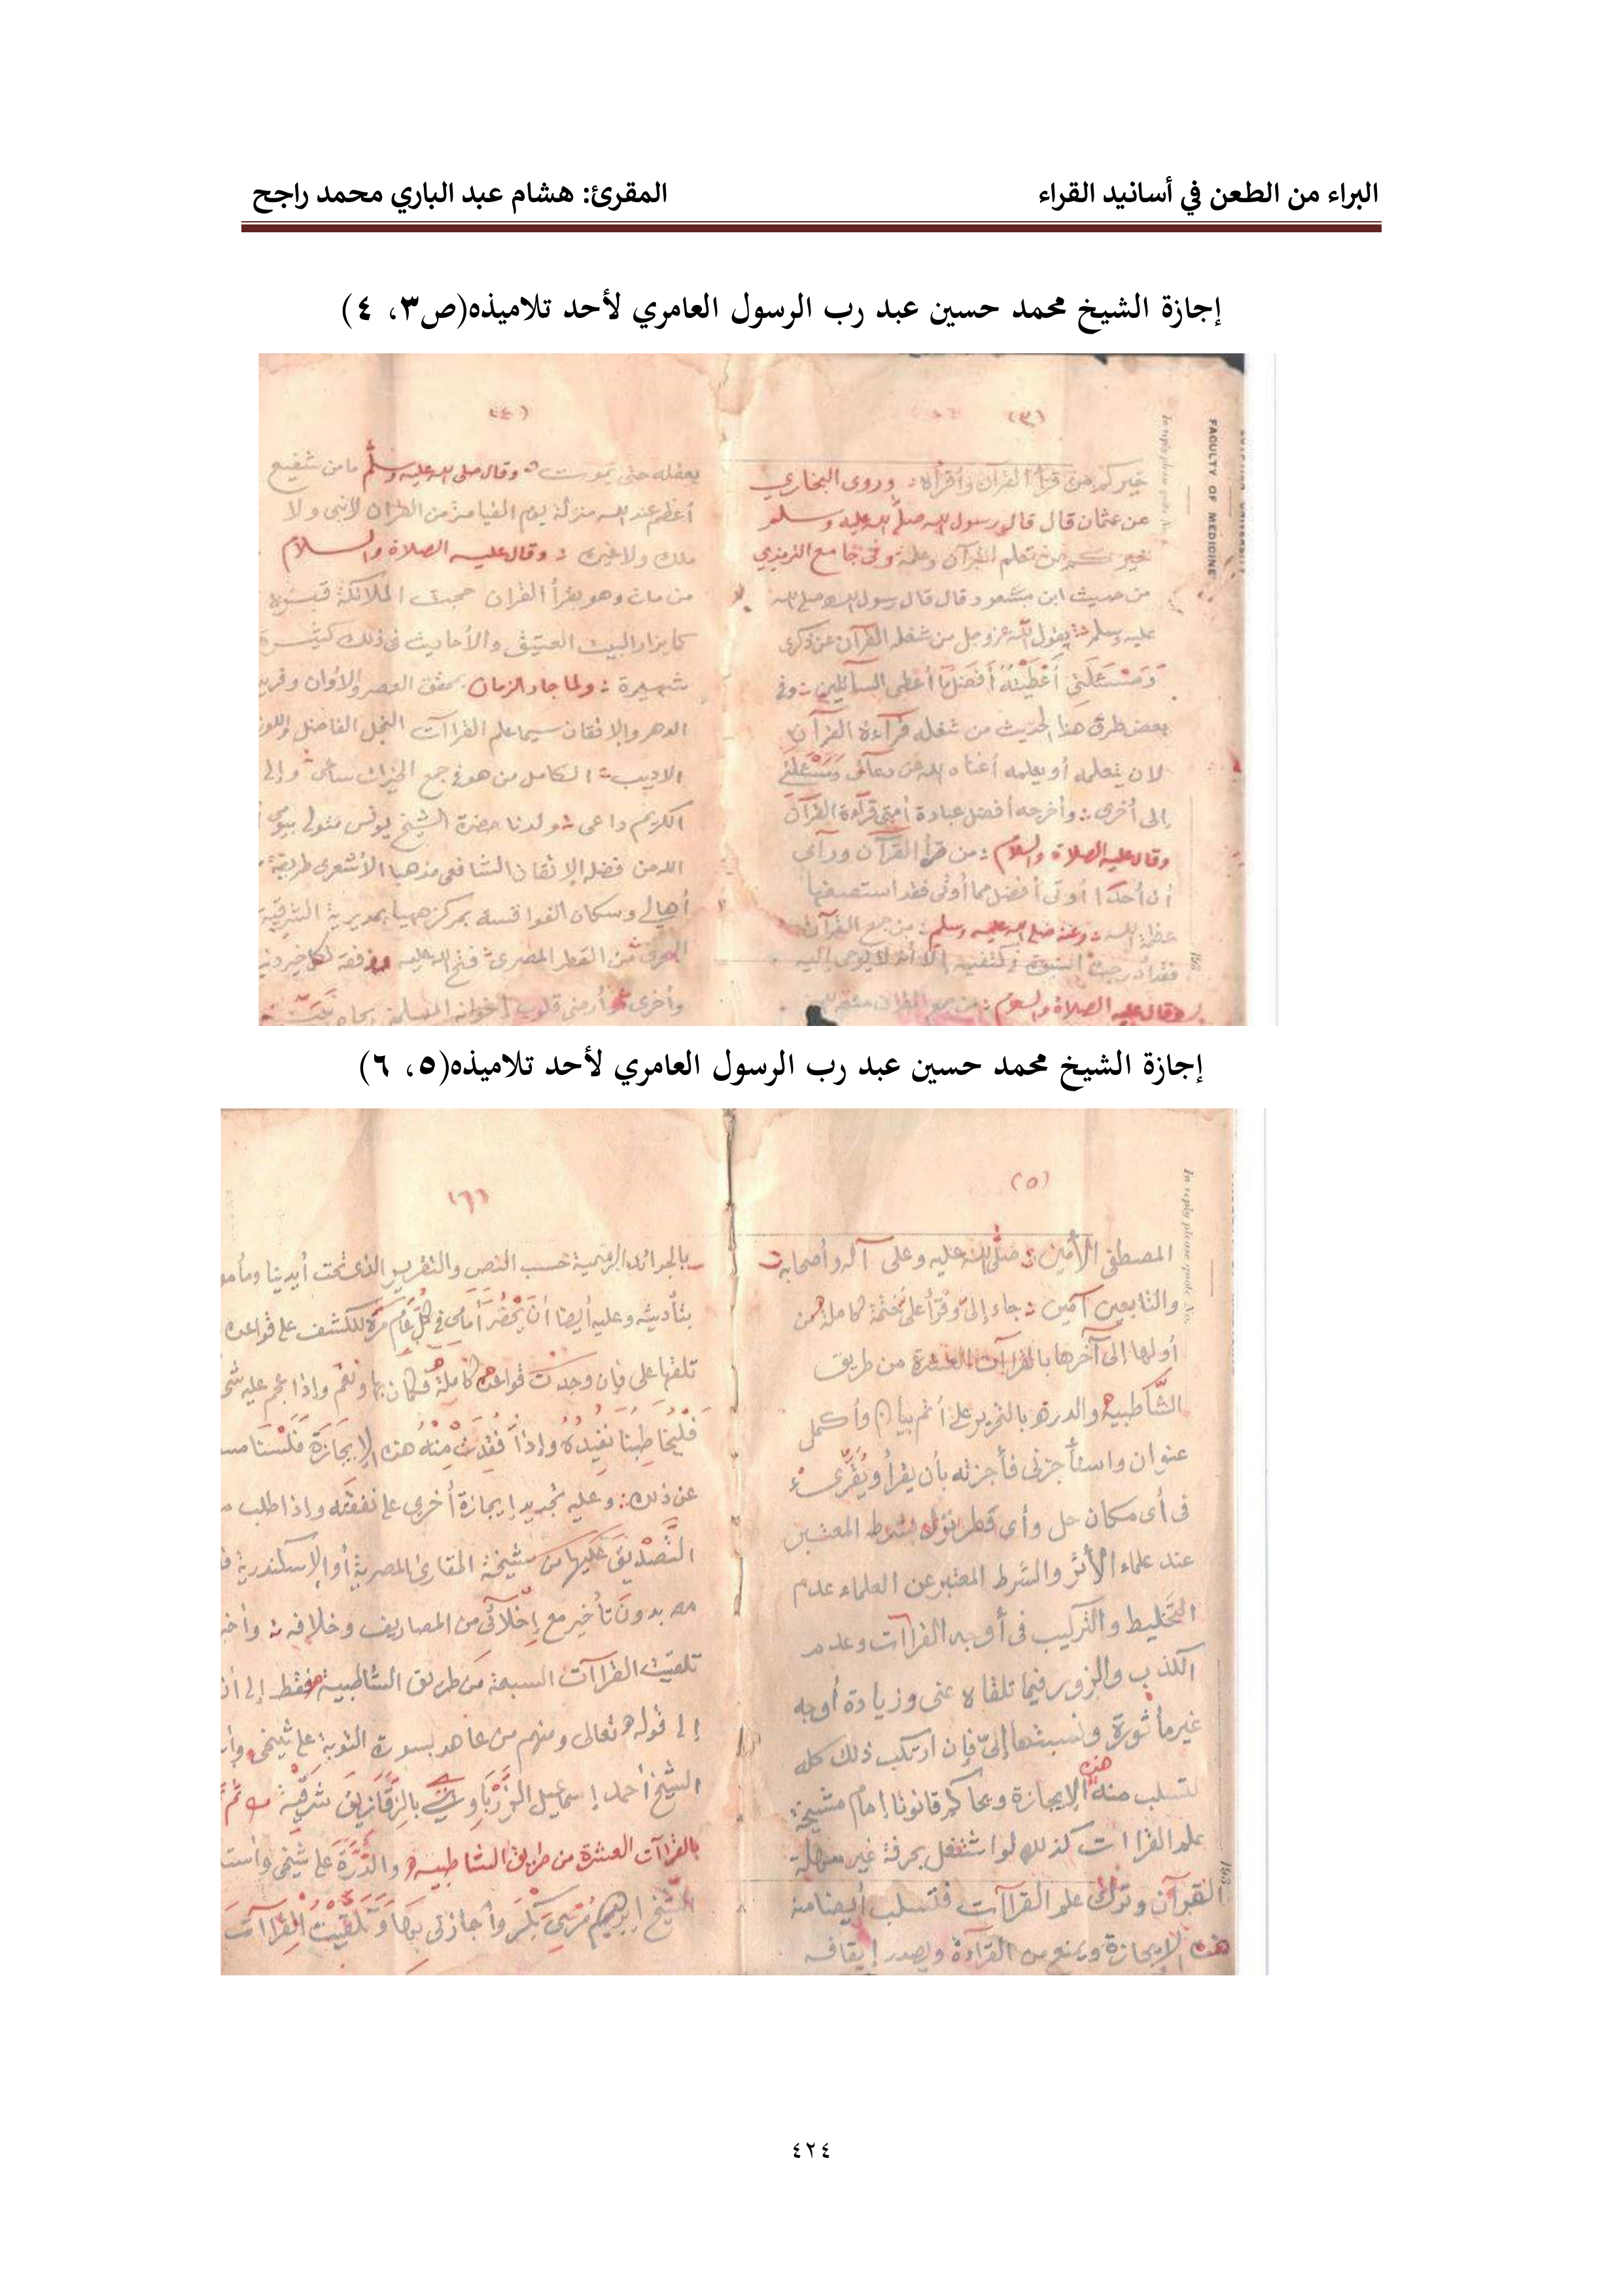 البراء من الطعن في أسانيد القراء
المقرئ: هشام عبد الباري محمد راجح
إجازة الشيخ محمد حسين عبد رب الرسول العامري لأحد تلاميذه(ص٣، ٤)
(٣)
FACULTY OF MEDICINE
In reply please quote No.
خيركم من قرأ القرآن وأقرأه : وروى البخاري
عن عثمان قال قال رسول الله صلى الله عليه وسلم
خيركم من تعلم القرآن وعلمه وفي جامع الترمذي
من حديث ابن مسعود قال قال رسول الله صلى الله
عليه وسلم يقول الله عز وجل من شغله القرآن عن ذكرى
وَمَسْئَلَتِي أَعْطَيْتُهُ أَفْضَلَ مَا أعطى السائلين : وفى
بعض طرق هذا الحديث من شغله قراءة القرآن
لان يتعلمه أو يعلمه أغناه الله عن دعائى وَمَسْئَلَتِى
إلى أخرى : وأخرجه أفضل عبادة أمتى قراءة القرآن
وقال عليه الصلاة والسلام : من قرأ القرآن ورأى
أن أحدا أوتى أفضل مما أوتى فقد استصغر ما
عظم الله : وعنه صلى الله عليه وسلم : من جمع القرآن
فقد أدرجت النبوة كتفيه إلا أنه لا يوحى إليه
وقال عليه الصلاة والسلام : من جمع القرآن متعه الله
(٤)
بعقله حتى يموت : وقال صلى الله عليه وسلم ما من شفيع
أعظم عند الله منزلة يوم القيامة من القرآن لا نبى ولا
ملك ولا غيره : وقال عليه الصلاة والسلام
من مات وهو يقرأ القران حجت الملائكة قبره
كما يزار البيت العتيق والأحاديث فى ذلك كثيرة
شهيرة : ولما جاد الزمان بمحقق العصر والأوان وفريد
الدهر والإتقان سيما علم القراآت النجل الفاضل واللوذ
الاديب : الكامل من هو فى جمع الخيرات ساعى وإلى
الكريم داعى : ولدنا حضرة الشيخ يونس متولى بيومى
الله من فضله الإتقان الشافعى مذهبا الأشعرى طريقة
أهالى وسكان القواقسة بمركز ههيا بمديرية الشرقية
من القطر المصرى فتح الله عليه ووفقه لكل خير دنيا
وأخرى وأرضى قلوب إخوانه المسلمين بجاه
إجازة الشيخ محمد حسين عبد رب الرسول العامري لأحد تلاميذه(٥، ٦)
(٥)
In reply please quote No.
المصطفى الأمين : صلى الله عليه وعلى آله وأصحابه
والتابعين آمين : جاء إلىّ وقرأ علىّ ختمة كاملة من
أولها إلى آخرها بالقراآت العشرة من طريق
الشاطبية والدرة بالتحرير على أتم بيان وأكمل
عنوان واستأجزنى فأجزته بأن يقرأ ويُقرئ
فى أى مكان حل وأى قطر نزل بشرطه المعتبر
عند علماء الأثر والشرط المعتبر عن العلماء عدم
التخليط والتركيب فى أوجه القراآت وعدم
الكذب والزور فيما تلقاه عنى وزيادة أوجه
غير مأثورة ونسبتها إلىّ فإن ارتكب ذلك كله
لتسلب منه هذه الإيجازة ويحاكم قانونا إمام مشيخة
علم القراات كذلك لو اشتغل بحرفة غير
القرآن وترك علم القراآت فتسلب أيضا منه
هذه الإيجازة ويمنع من القراءة ويصدر إيقافه
(٦)
بالجرائد الرسمية حسب النص والتقرير الذى تحت أيدينا
بتأديته وعليه أيضا أن يحضر أمامى فى كل عام مرة للكشف على قواعده
تلقها على فإن وجدت قواعده كاملة فكان بها ونعم وإذا عجم عليه
فليخاطبنا نفيده وإذا فقدت منه هذه الإيجازة فلسنا
عن ذلك : وعليه تجديد إيجازة أخرى على نفقته وإذا طلب
التصديق عليها من مشيخة المقارئ المصرية أو الإسكندرية
بدون تأخير مع إخلائى من المصاريف وخلافه :
تلقيت القراآت السبعة من طريق الشاطبية فقط إلى أن
إلى قوله تعالى ومنهم من عاهد بسورة التوبة على شيخى
الشيخ أحمد إسماعيل بالزقازيق شرقية ثم
بالقراآت العشرة من طريق الشاطبية والدرة على شيخى
الشيخ إبرهيم مرسى بكر وأجازنى بها وتلقيت القراآت
٤٢٤